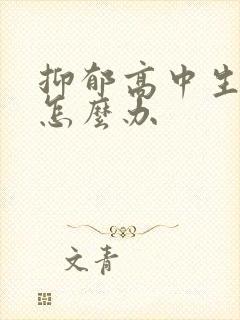 抑郁高中生
怎麼办
文青